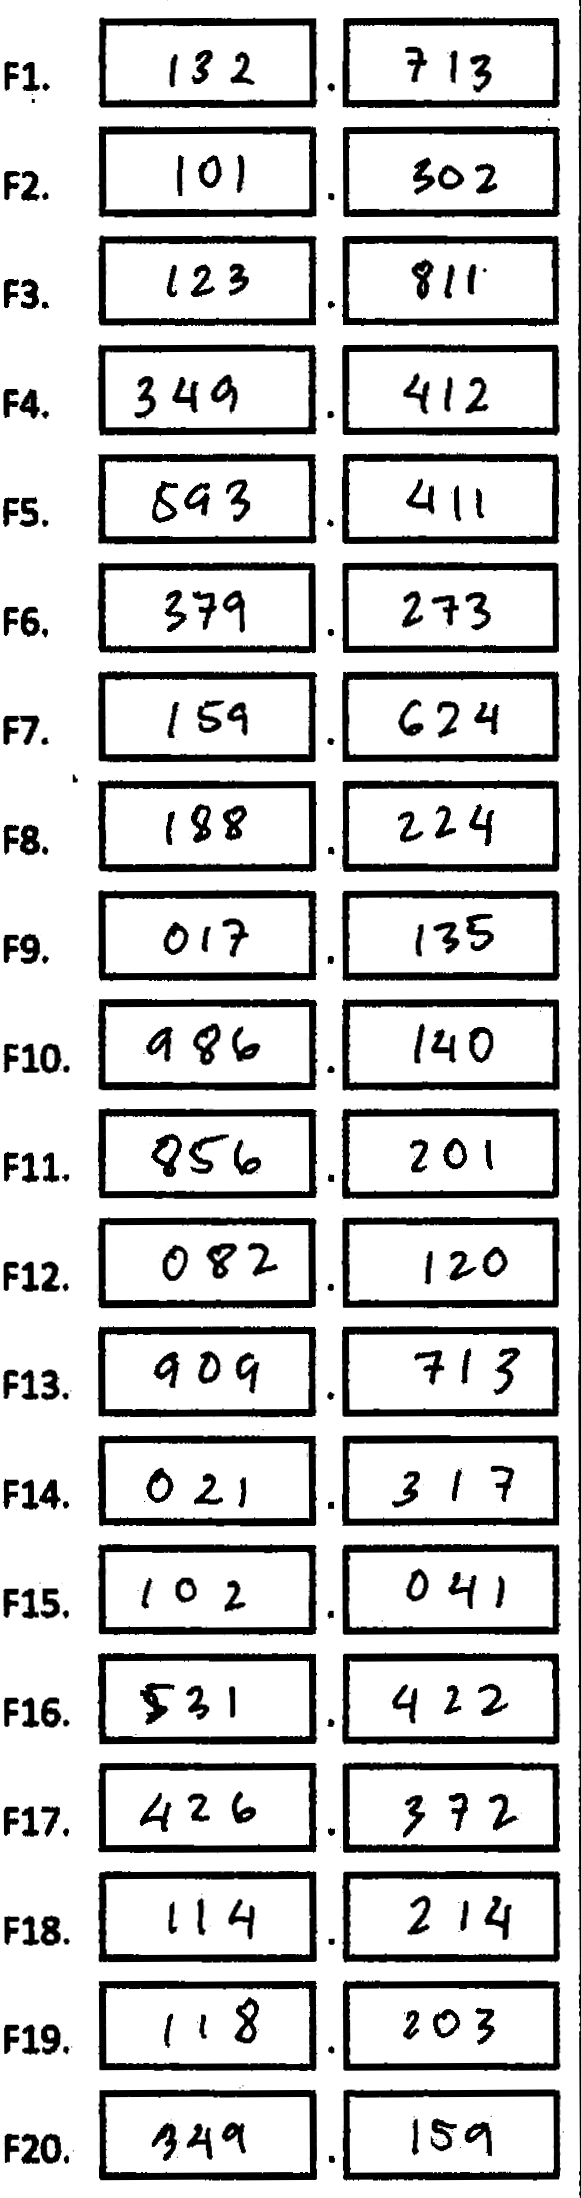 F1. 132 . 713
F2. 101 . 302
F3. 123 . 811
F4. 349 . 412
F5. 593 . 411
F6. 379 . 273
F7. 159 . 624
F8. 188 . 224
F9. 017 . 135
F10. 986 . 140
F11. 856 . 201
F12. 082 . 120
F13. 909 . 713
F14. 021 . 317
F15. 102 . 041
F16. 531 . 422
F17. 426 . 372
F18. 114 . 214
F19. 118 . 203
F20. 349 . 159